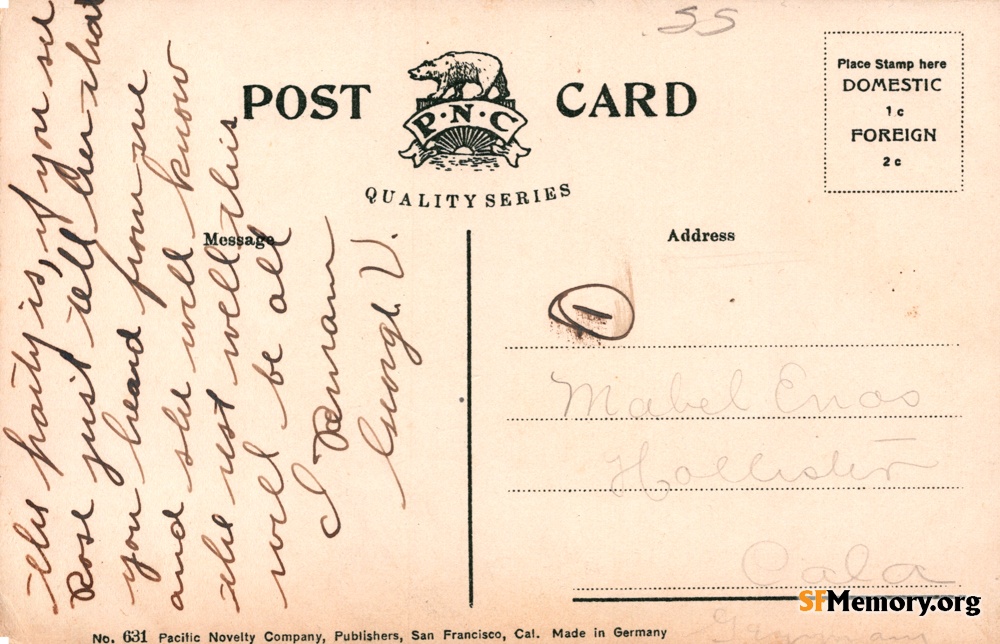 55
POST CARD
P·N·C
QUALITY SERIES
Place Stamp here
DOMESTIC
1c
FOREIGN
2c
Message
Address
this party is, if you see
Rose just tell her that
you heard from me
and she will know
the rest well this
will be all
I Remain
George V.
1
Mabel Enos
Hollister
Cala
SFMemory.org
No. 631 Pacific Novelty Company, Publishers, San Francisco, Cal. Made in Germany